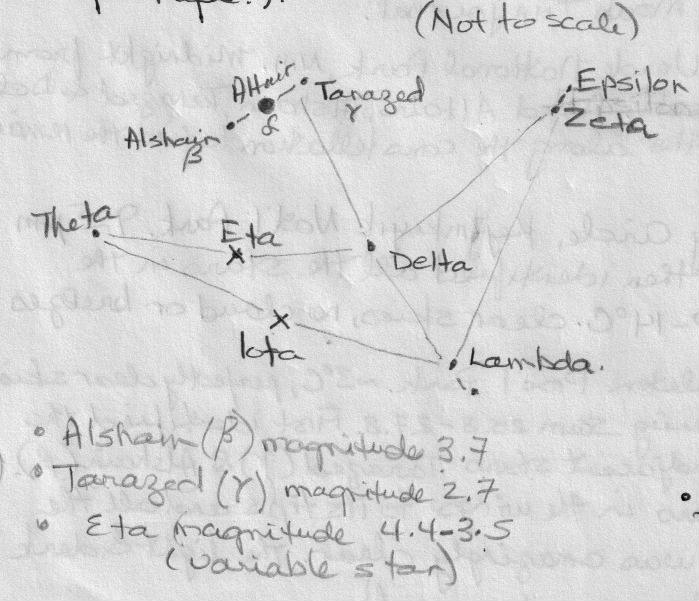 (Not to scale)
Altair
α
Tarazed
γ
Alshain
β
Epsilon
Zeta
Theta
Eta
Delta
Iota
Lambda.
• Alshain (β) magnitude 3.7
• Tarazed (γ) magnitude 2.7
• Eta magnitude 4.4-3.5
(variable star)